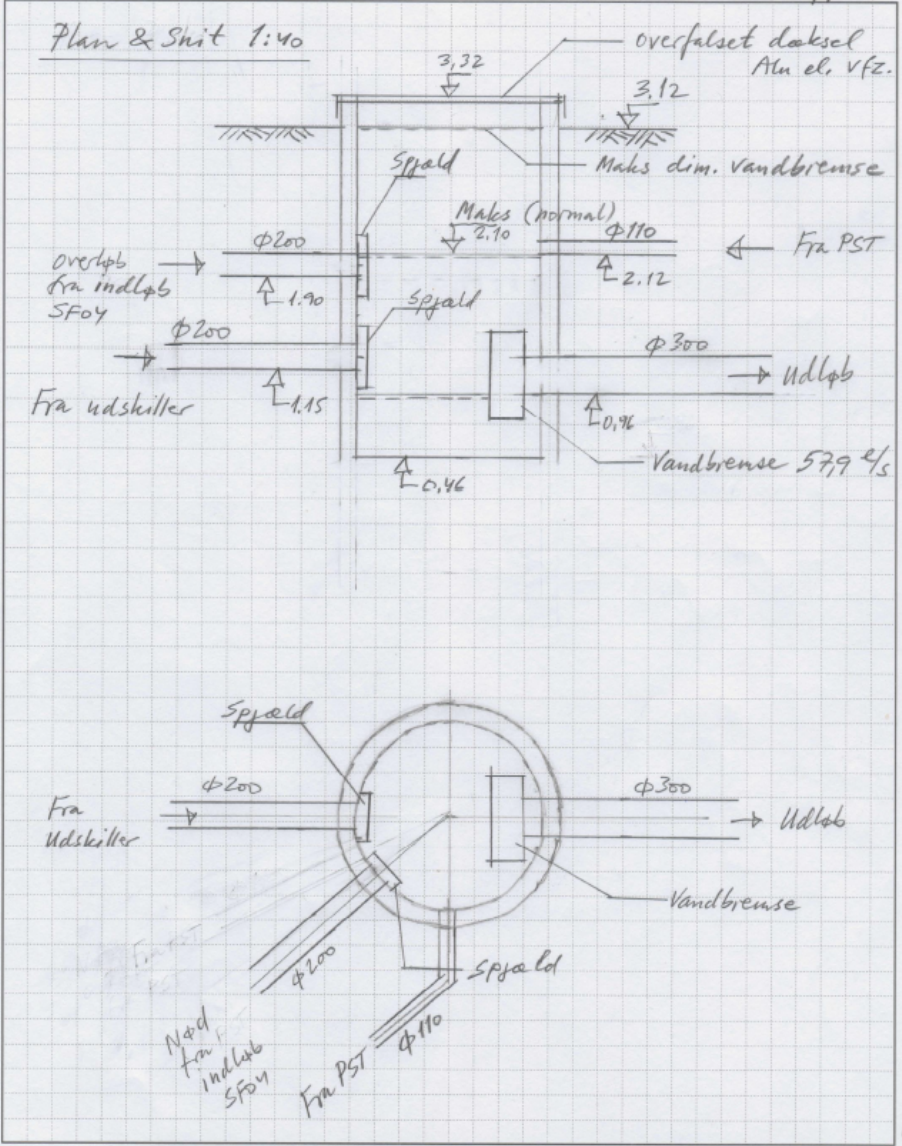 Plan & Snit 1:40
overfalset dæksel
Alu el. vfz.
3,32
3.12
Spjæld
Maks dim. vandbremse
Maks (normal)
2.10
Φ200
Φ110
Fra PST
overløb
fra indløb
SF04
1.90
2.12
Spjæld
Φ200
Φ300
Udløb
Fra udskiller
1.15
0,96
Vandbremse 57,9 l/s
0,46
Spjæld
Φ200
Φ300
Fra
Udskiller
Udløb
Vandbremse
Φ200
Spjæld
Nød
fra
indløb
SF04
Fra PST
Φ110